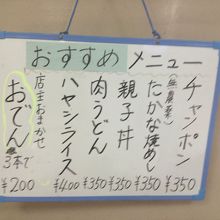 おすすめメニュー
チャンポン ¥350
(無農薬)
たかな焼めし ¥350
親子丼 ¥350
肉うどん ¥350
ハヤシライス ¥400
店主おまかせ
おでん 3本で ¥200